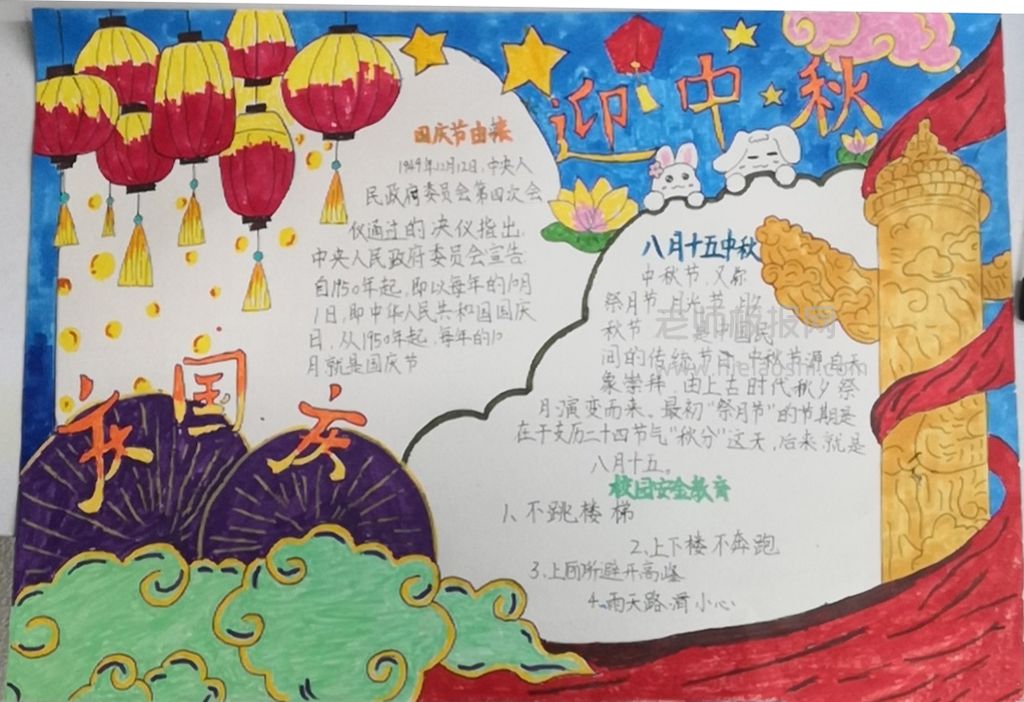 迎中秋
国庆节由来
1949年12月12日,中央人
民政府委员会第四次会
仪通过的决仪指出,
中央人民政府委员会宣告
自1950年起,即以每年的10月
1日,即中华人民共和国国庆
日,从1950年起,每年的10
月就是国庆节
庆国庆
八月十五中秋
中秋节,又称
祭月节 月光节
秋节 是中国民
间的传统节日,中秋节源自天
象崇拜,由上古时代秋夕祭
月演变而来。最初"祭月节"的节期是
在干支历二十四节气"秋分"这天,后来就是
八月十五。
校园安全教育
1、不跳楼梯
2、上下楼不奔跑
3、上厕所避开高峰
4、雨天路滑小心
老师板报网